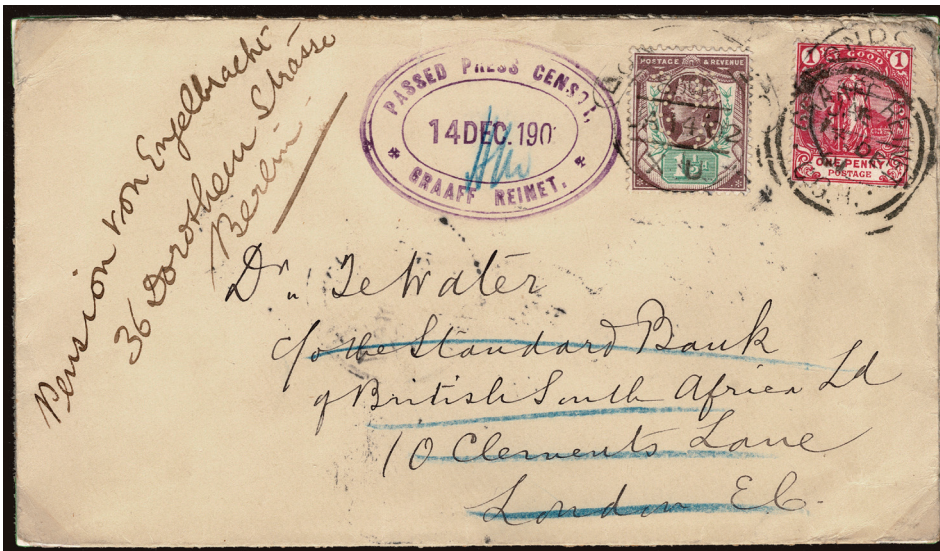 Pension von Engelbracht
36 Dorotheen Strasse
Berlin
PASSED PRESS CENSOR.
14 DEC. 190
GRAAFF REINET.
POSTAGE & REVENUE
1 OF GOOD 1
ONE PENNY
POSTAGE
GRAAFF REINET
Dr. Te Water
c/o the Standard Bank
of British South Africa Ld
10 Clements Lane
London E.C.